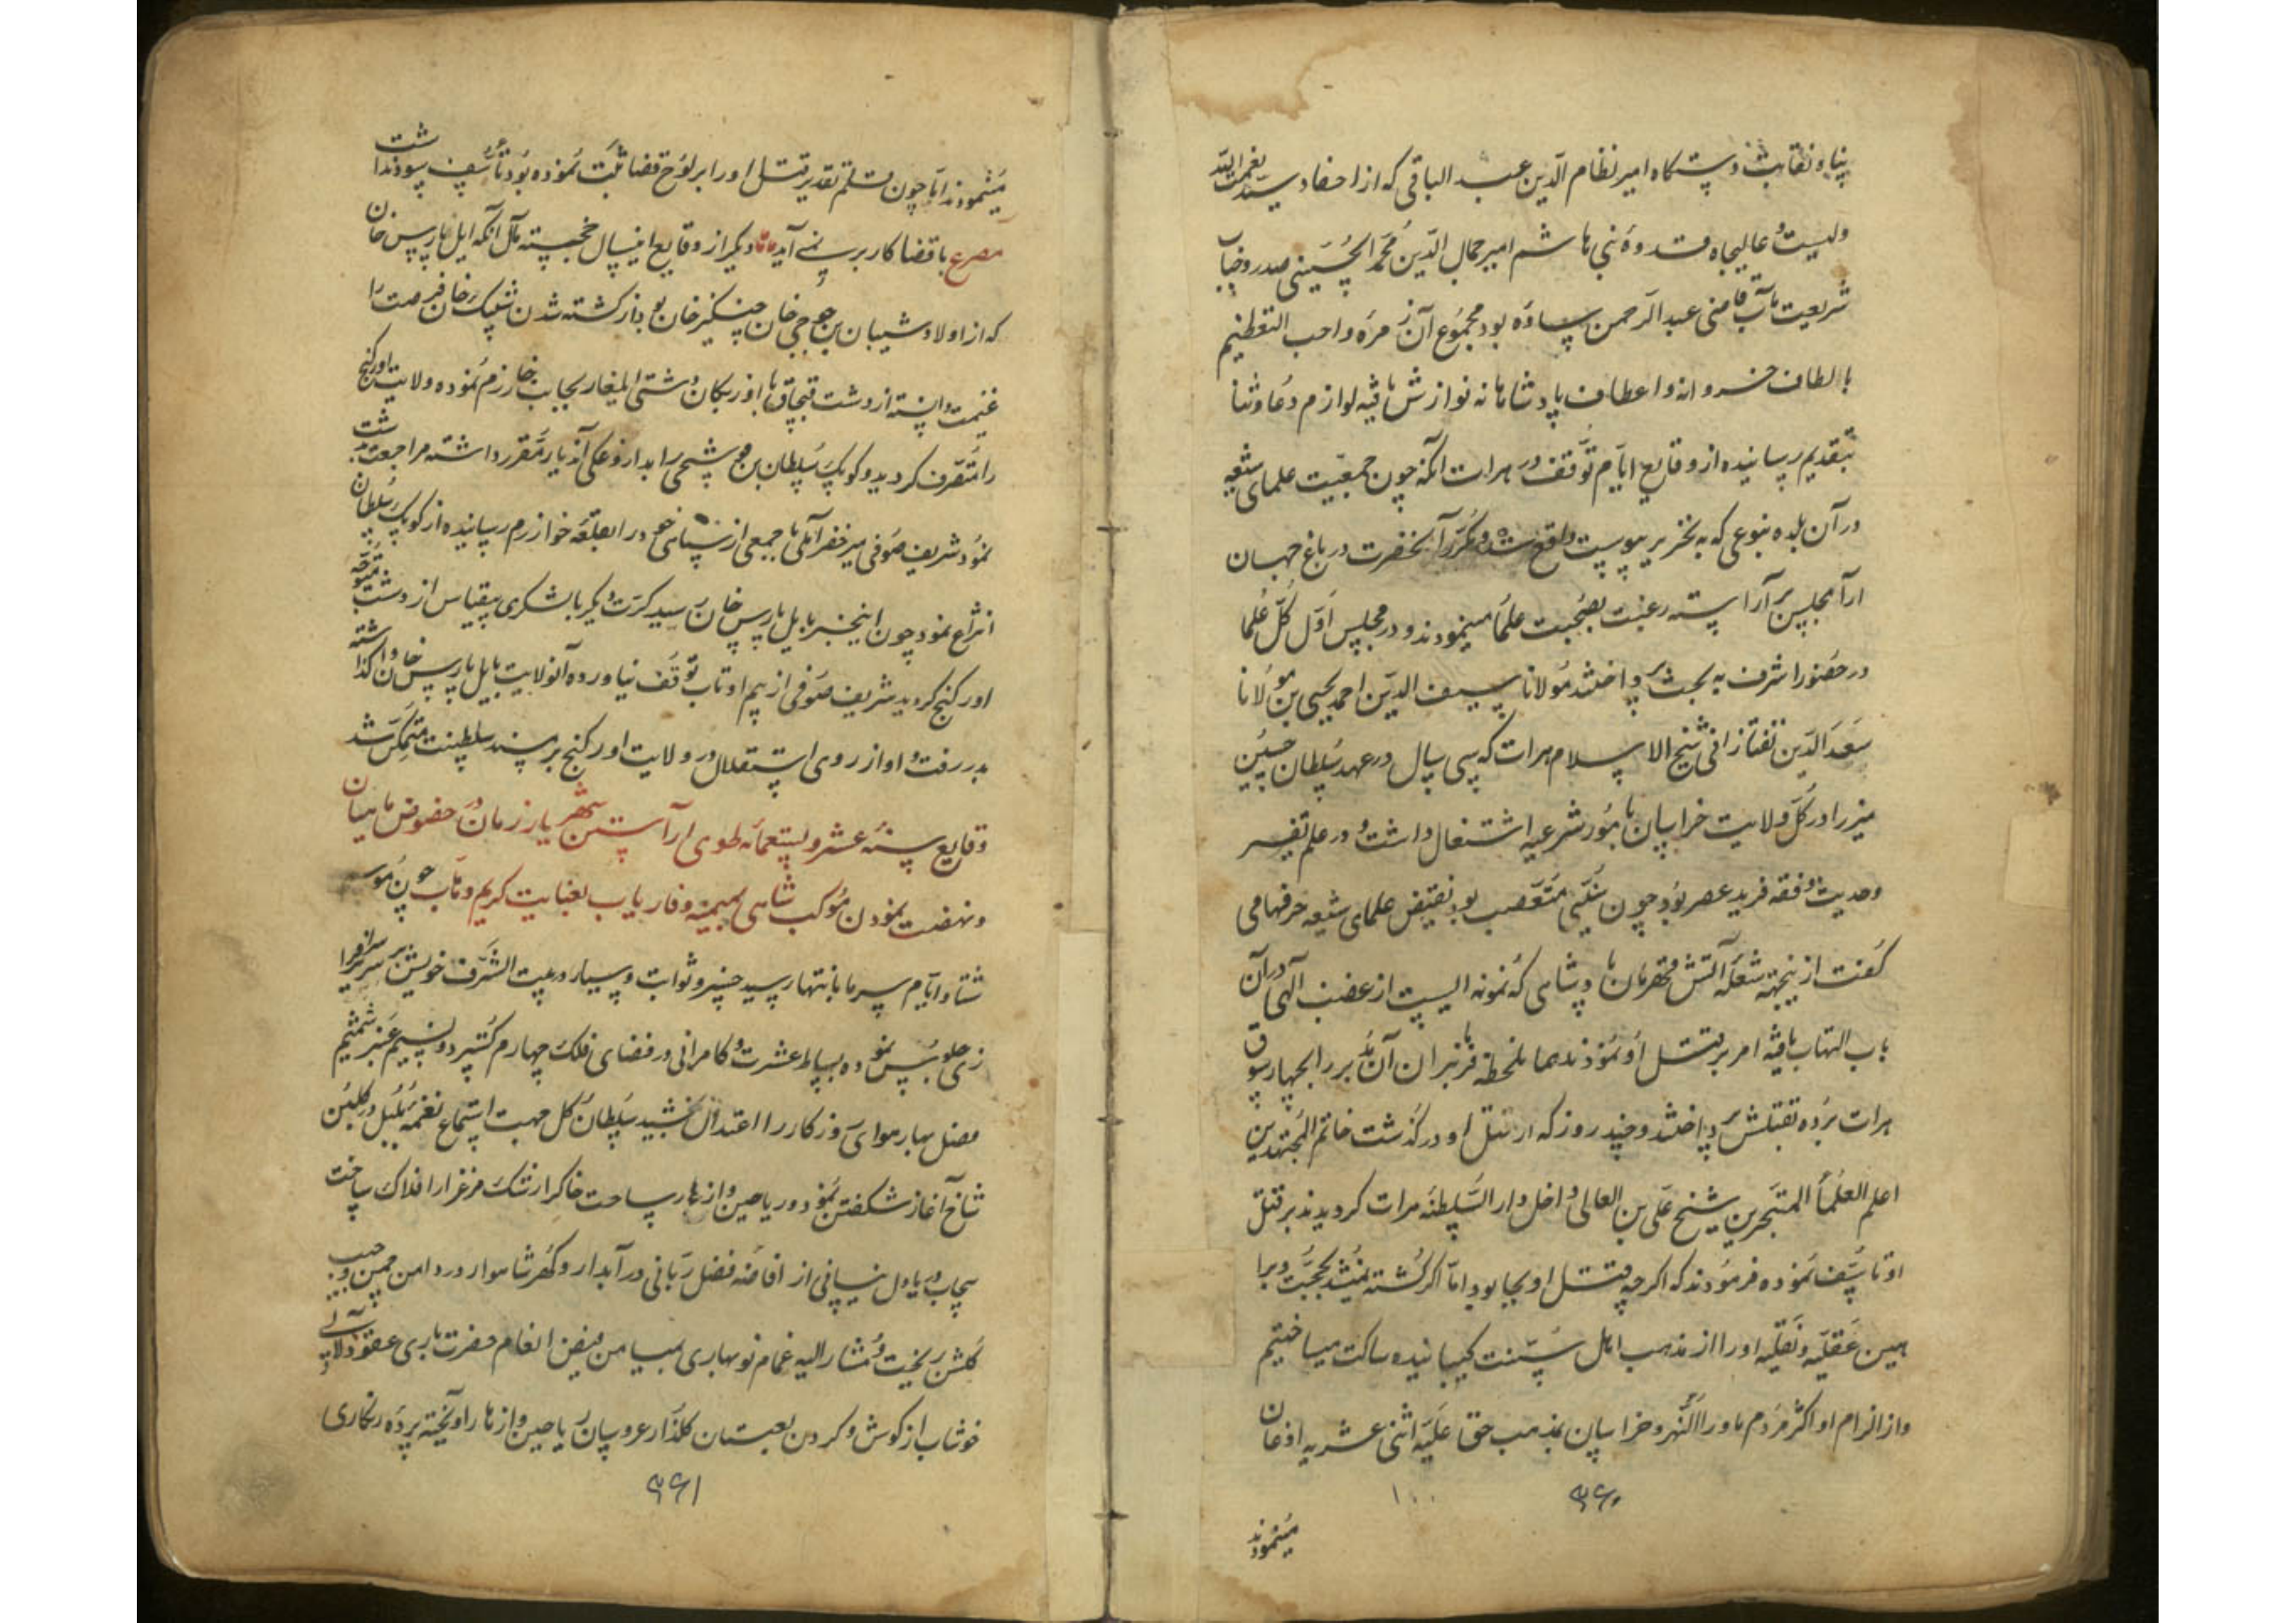 پناه و نقابت دستگاه امیر نظام الدین عبد الباقی که از احفاد سید نعمت الله
ولیست و عالیجاه قدوهٔ بنی هاشم امیر جمال الدین محمد الحسینی صدر و جناب
شریعت مآب قاضی عبد الرحمن ساوه بود مجموع آن زمره واجب التعظیم
بالطاف خسروانه و اعطاف پادشاهانه نوازش یافته لوازم دعا و ثنا
بتقدیم رسانیده از وقایع ایام توقف در هرات آنکه چون جمعیت علمای شیعه
در آن بلده بنوعی که به تحریر پیوست واقع شد و مکرر آنحضرت در باغ جهان
آرا مجلس بر آراسته رغبت بصحبت علما مینمودند و در مجلس اول کل علما
در حضور اشرف به بحث پرداختند مولانا سیف الدین احمد یحیی بن مولانا
سعد الدین تفتازانی شیخ الاسلام هرات که سی سال در عهد سلطان حسین
میرزا در کل ولایت خراسان بامور شرعیه اشتغال داشت و در علم تفسیر
و حدیث و فقه فرید عصر بود چون سنی متعصب بود نقیض علمای شیعه حرفها می
گفت از ینجهة شعله آتش قهرمان پادشاهی که نمونه ایست از غضب الهی در آن
باب التهاب یافته امر بر قتل او نمودند همان لحظه فرمانبران آن مدبر را بچهار سوق
هرات برده بقتلش پرداختند و چند روز که از قتل او در گذشت خاتم المجتهدین
اعلم العلماء المتبحرین شیخ علی بن العالی داخل دار السلطنه هرات گردیدند بر قتل
او تاسف نموده فرمودند که اگرچه قتل او بجا بود اما اگر کشته نمیشد بحجت و برا
هین عقلیه و نقلیه او را از مذهب اهل سنت گسلانیده ساکت میساختیم
و از الزام او اکثر مردم ماوراءالنهر و خراسان بمذهب حق علیه اثنی عشریه اذعان
۳۶۰
۱۰۰
مینمودند
مینمودند اما چون مستلم تقدیر قتل او را بر لوح قضا ثبت نموده بود تاسف سود نداشت
مصرع با قضا کار بر نمی آید دیگر از وقایع اینسال خجسته مآل آنکه ایل پارس خان
که از اولاد شیبان بن جوجی خان چنگیز خان بود از کشته شدن شیبک خان فرصت را
غنیمت دانسته از دشت قبچاق با اوزبکان دشتی ایلغار بجانب خوارزم نموده ولایت اورکنج
را متصرف گردید و کوپک سلطان بن شیخی را بداروغگی آندیار مقرر داشته مراجعت
نمود شریف صوفی میر خضر آملی با جمعی از سپاهی خود را بقلعه خوارزم رسانیده از کوپک سلطان
انتزاع نمود چون اینخبر بایل پارس خان رسید کرت دیگر با لشکری بیقیاس از دشت متوجه
اورکنج گردید شریف صوفی از بیم او تاب توقف نیاورده آنولایت بایل پارس خان وا گذاشته
بدر رفت و او از روی استقلال در ولایت اورکنج بر مسند سلطنت متمکن شد
وقایع سنه عشر و تسعمائه طوی آراستن شهریار زمان
و نهضت نمودن موکب شاهی بمیمنه و فاریاب بعنایت کریم وهاب چون موسم
شتا و ایام سرما بانتها رسید خسرو ثوابت و سیار در بیت الشرف خویش بر سریر سرافرا
زی جلوس نموده بساط عشرت و کامرانی در فضای فلک چهارم گسترد و نسیم عنبر شمیم
فصل بهار هوای روزگار را اعتدال بخشید سلطان گل جهت استماع نغمه بلبل در گلبن
شاخ آغاز شکفتن نمود و ریاحین و ازهار ساحت خاک را رشک مرغزار افلاک ساخت
سحاب دریا دل نیسانی از افاضه فضل ربانی در آبدار و گهر شاهوار در دامن چمن و جیب
گلشن ریخت و مشار الیه غمام نوبهاری بمیامن فیض انعام حضرت باری عقود لالی
خوشاب از گوش و گردن لعبتان گلزار عروسان ریاحین و ازهار آویخته پرده زنگاری
۳۶۱